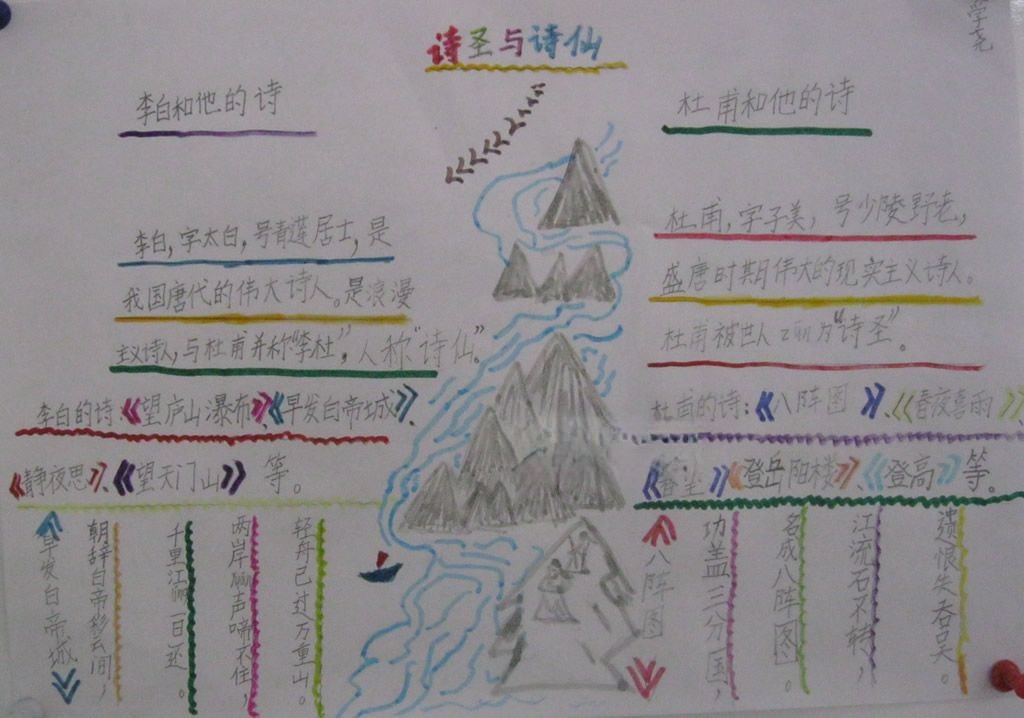 诗圣与诗仙
李白和他的诗
李白,字太白,号青莲居士,是
我国唐代的伟大诗人。是浪漫
主义诗人,与杜甫并称“李杜”,人称“诗仙”。
李白的诗:《望庐山瀑布》、《早发白帝城》、
《静夜思》、《望天门山》等。
早发白帝城
朝辞白帝彩云间,
千里江陵一日还。
两岸猿声啼不住,
轻舟已过万重山。
杜甫和他的诗
杜甫,字子美,号少陵野老,
盛唐时期伟大的现实主义诗人。
杜甫被世人 为“诗圣”。
杜甫的诗:《八阵图》、《春夜喜雨》
《登岳阳楼》、《登高》等。
《八阵图》
功盖三分国,
名成八阵图。
江流石不转,
遗恨失吞吴。